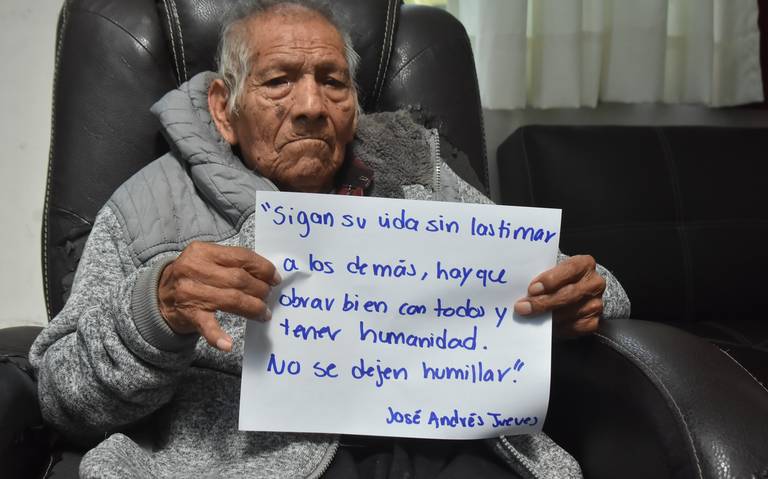 "Sigan su vida sin lastimar
a los demás, hay que
obrar bien con todos y
tener humanidad.
No se dejen humillar."
José Andrés Jueves